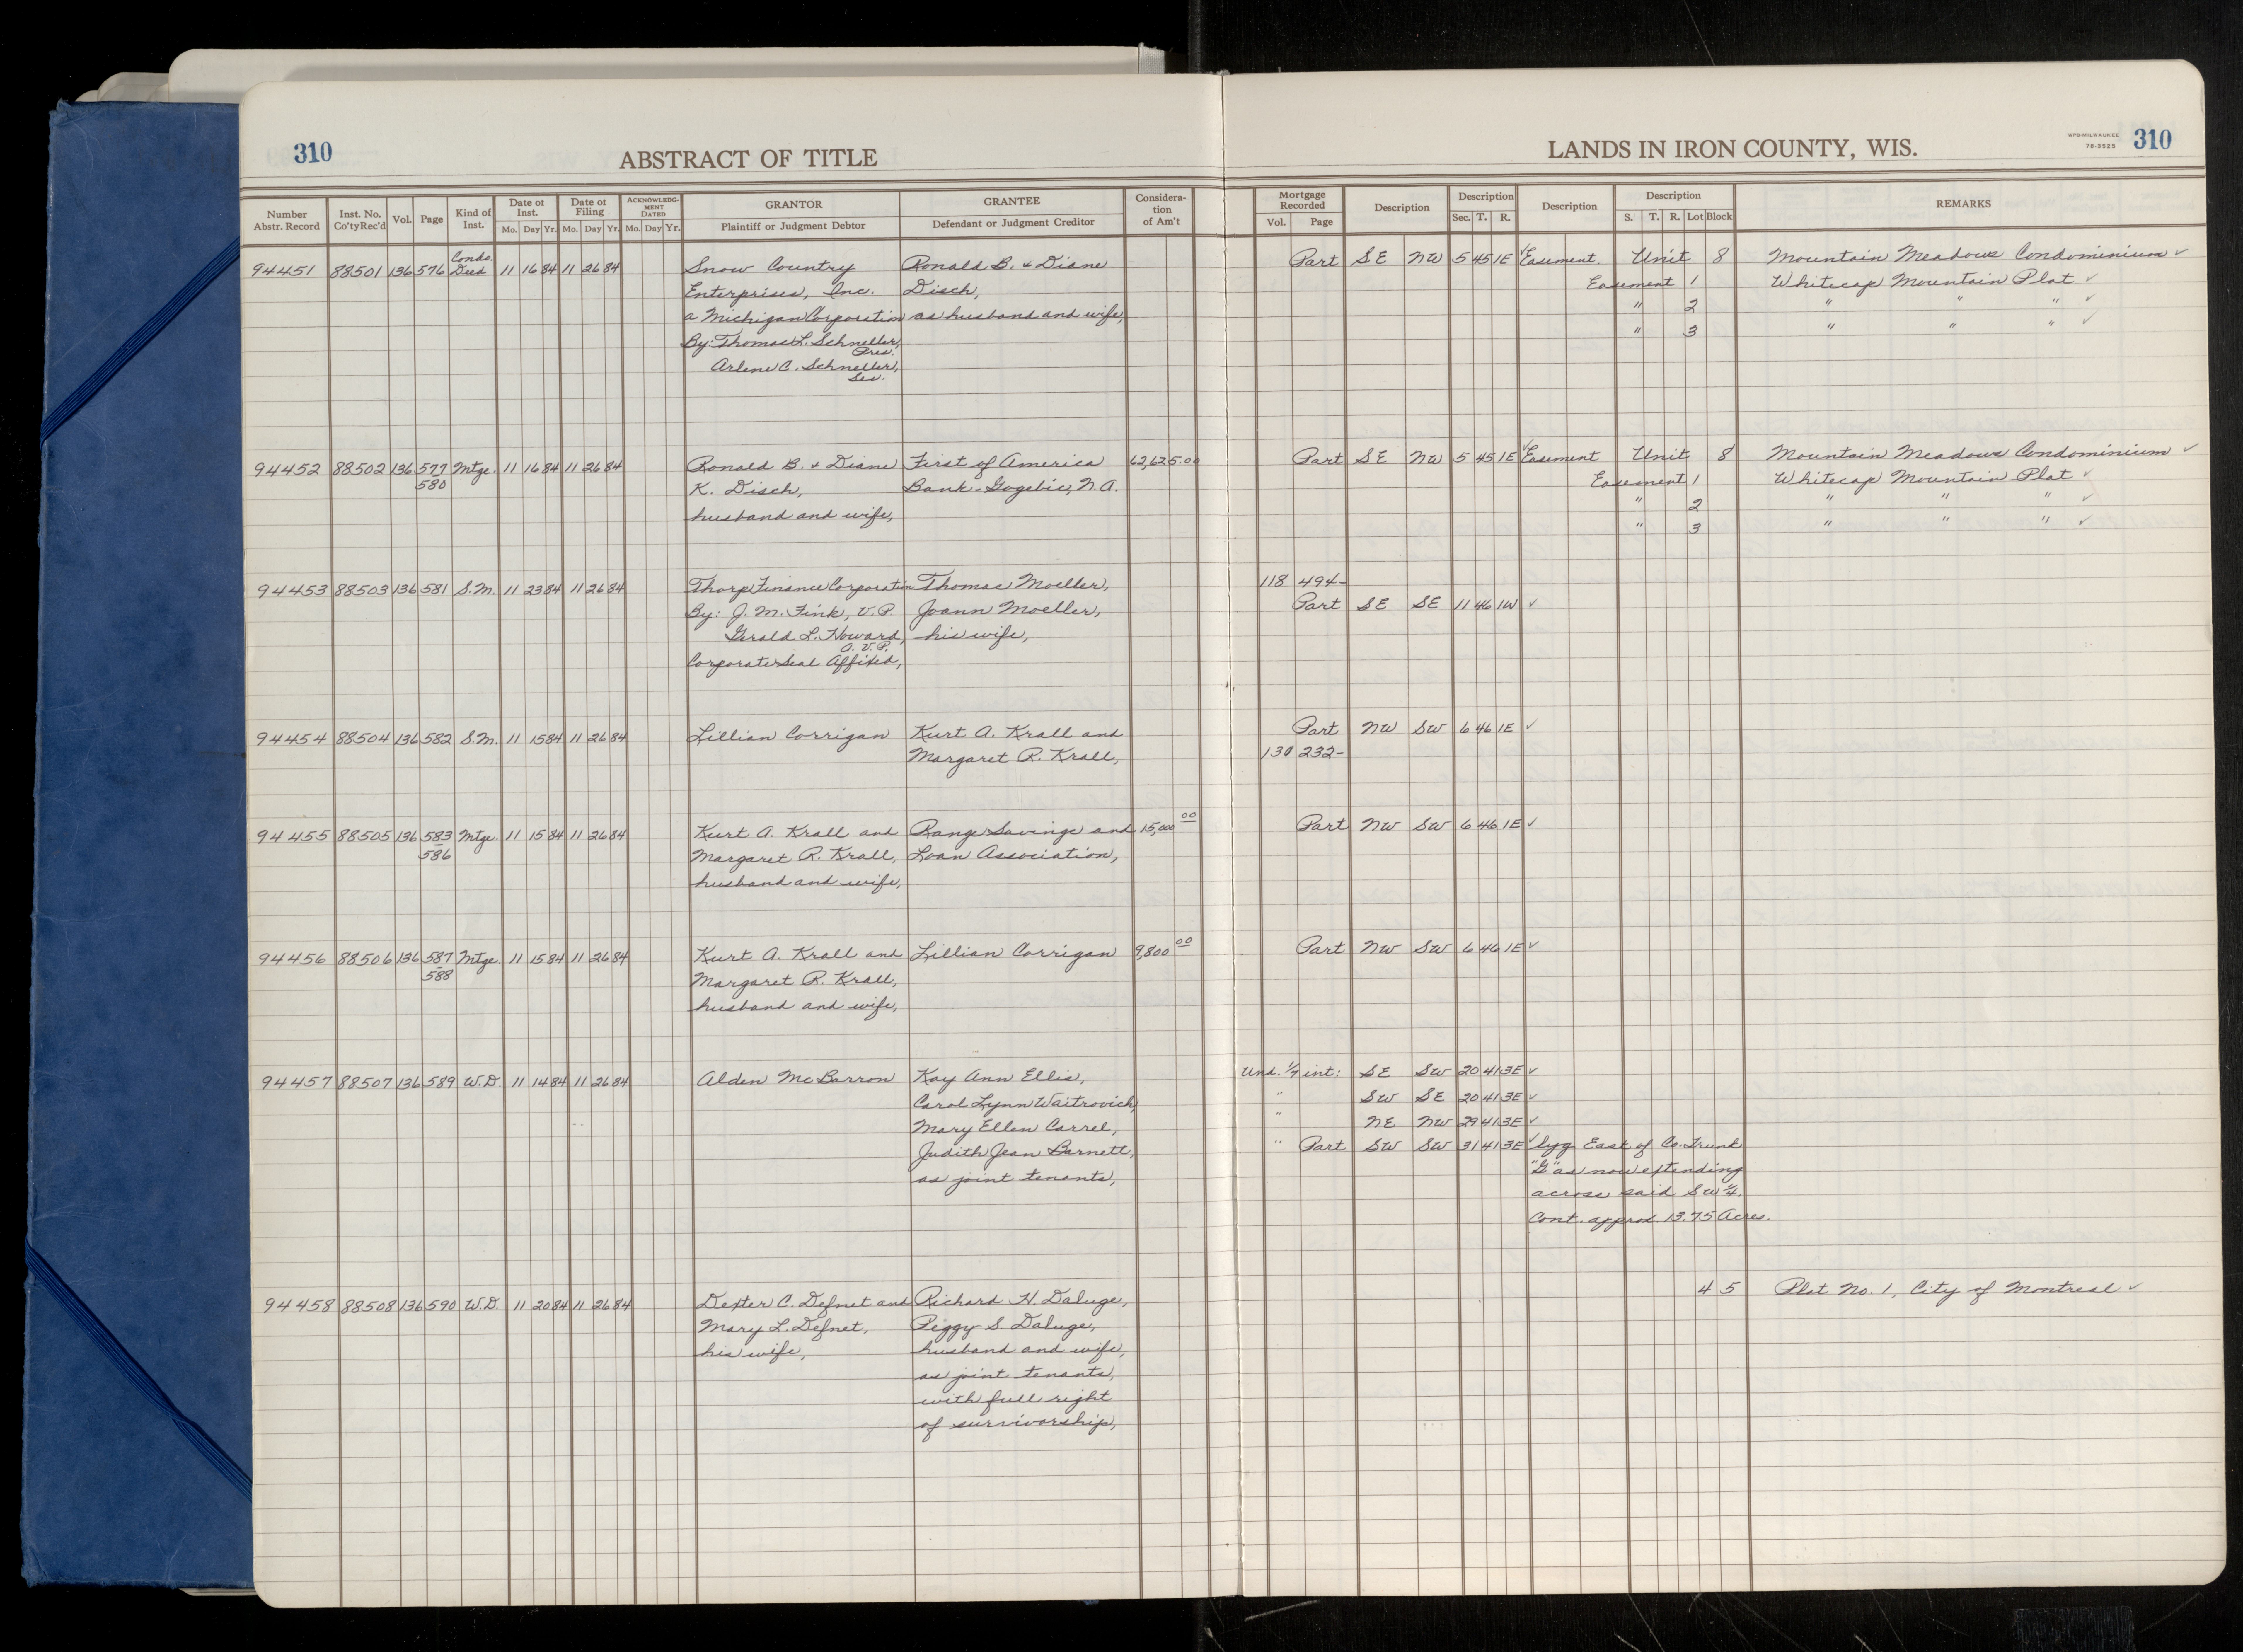 310
ABSTRACT OF TITLE
LANDS IN IRON COUNTY, WIS.
WPB-MILWAUKEE
78-3525
310
Number Abstr. Record | Inst. No. Co'ty Rec'd | Vol. | Page | Kind of Inst. | Date of Inst. Mo. Day Yr. | Date of Filing Mo. Day Yr. | ACKNOWLEDGMENT DATED Mo. Day Yr. | GRANTOR Plaintiff or Judgment Debtor | GRANTEE Defendant or Judgment Creditor | Consideration of Am't | Mortgage Recorded Vol. Page | Description | Description Sec. T. R. | Description | Description S. T. R. Lot Block | REMARKS
94451 88501 136 576 Condo. Deed 11 16 84 11 26 84 Snow Country Ronald B. & Diane Part SE NW 5 45 1E ✓Easement. Unit 8 Mountain Meadows Condominium ✓
Enterprises, Inc. Disch, Easement 1 Whitecap Mountain Plat ✓
a Michigan Corporation as husband and wife, " 2 " " " ✓
By: Thomas L. Schneller, Pres. " 3 " " " ✓
Arlene C. Schneller, Sec.
94452 88502 136 577 Mtge. 11 16 84 11 26 84 Ronald B. & Diane First of America 62,625.00 Part SE NW 5 45 1E ✓Easement Unit 8 Mountain Meadows Condominium ✓
580 K. Disch, Bank-Gogebic, N.A. Easement 1 Whitecap Mountain Plat ✓
husband and wife, " 2 " " " ✓
" 3 " " " ✓
94453 88503 136 581 S.M. 11 23 84 11 26 84 Thorp Finance Corporation Thomas Moeller, 118 494-
By: J. M. Fink, V.P. Joann Moeller, Part SE SE 11 46 1W ✓
Gerald L. Howard, A.V.P. his wife,
Corporate Seal Affixed,
94454 88504 136 582 S.M. 11 15 84 11 26 84 Lillian Corrigan Kurt A. Krall and Part NW SW 6 46 1E ✓
Margaret R. Krall, 130 232-
94455 88505 136 583 Mtge. 11 15 84 11 26 84 Kurt A. Krall and Range Savings and 15,000 00 Part NW SW 6 46 1E ✓
586 Margaret R. Krall, Loan Association,
husband and wife,
94456 88506 136 587 Mtge. 11 15 84 11 26 84 Kurt A. Krall and Lillian Corrigan 9,800 00 Part NW SW 6 46 1E ✓
588 Margaret R. Krall,
husband and wife,
94457 88507 136 589 W.D. 11 14 84 11 26 84 Alden McBarron Kay Ann Ellis, Und. 1/7 int: SE SW 20 41 3E ✓
Carol Lynn Waitrovich, " SW SE 20 41 3E ✓
Mary Ellen Carrel, " NE NW 29 41 3E ✓
Judith Jean Barnett, " Part SW SW 31 41 3E ✓ lyg East of Co. Trunk
as joint tenants, "G" as now extending
across said SW 1/4.
Cont. approx. 13.75 Acres.
94458 88508 136 590 W.D. 11 20 84 11 26 84 Dexter C. Defnet and Richard H. Daluge, 4 5 Plat No. 1, City of Montreal ✓
Mary L. Defnet, Peggy S. Daluge,
his wife, husband and wife,
as joint tenants,
with full right
of survivorship,